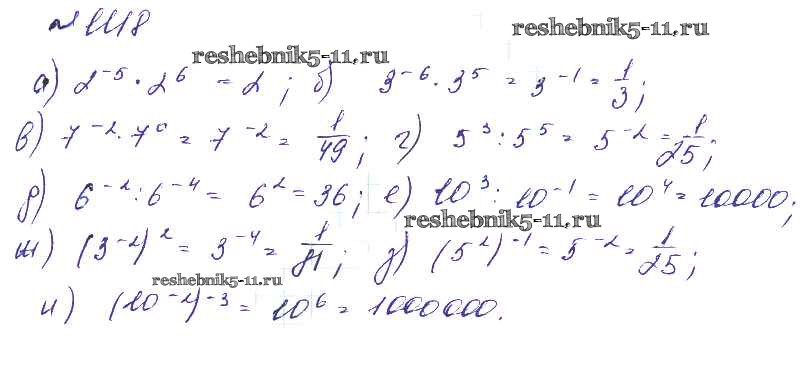 № 1118
reshebnik5-11.ru
reshebnik5-11.ru
а) 2⁻⁵ · 2⁶ = 2 ; б) 3⁻⁶ · 3⁵ = 3⁻¹ = 1/3 ;
в) 7⁻² · 7⁰ = 7⁻² = 1/49 ; г) 5³ : 5⁵ = 5⁻² = 1/25 ;
д) 6⁻² : 6⁻⁴ = 6² = 36 ; е) 10³ : 10⁻¹ = 10⁴ = 10000 ;
reshebnik5-11.ru
ж) (3⁻²)² = 3⁻⁴ = 1/81 ; з) (5²)⁻¹ = 5⁻² = 1/25 ;
reshebnik5-11.ru
и) (10⁻²)⁻³ = 10⁶ = 1000000.